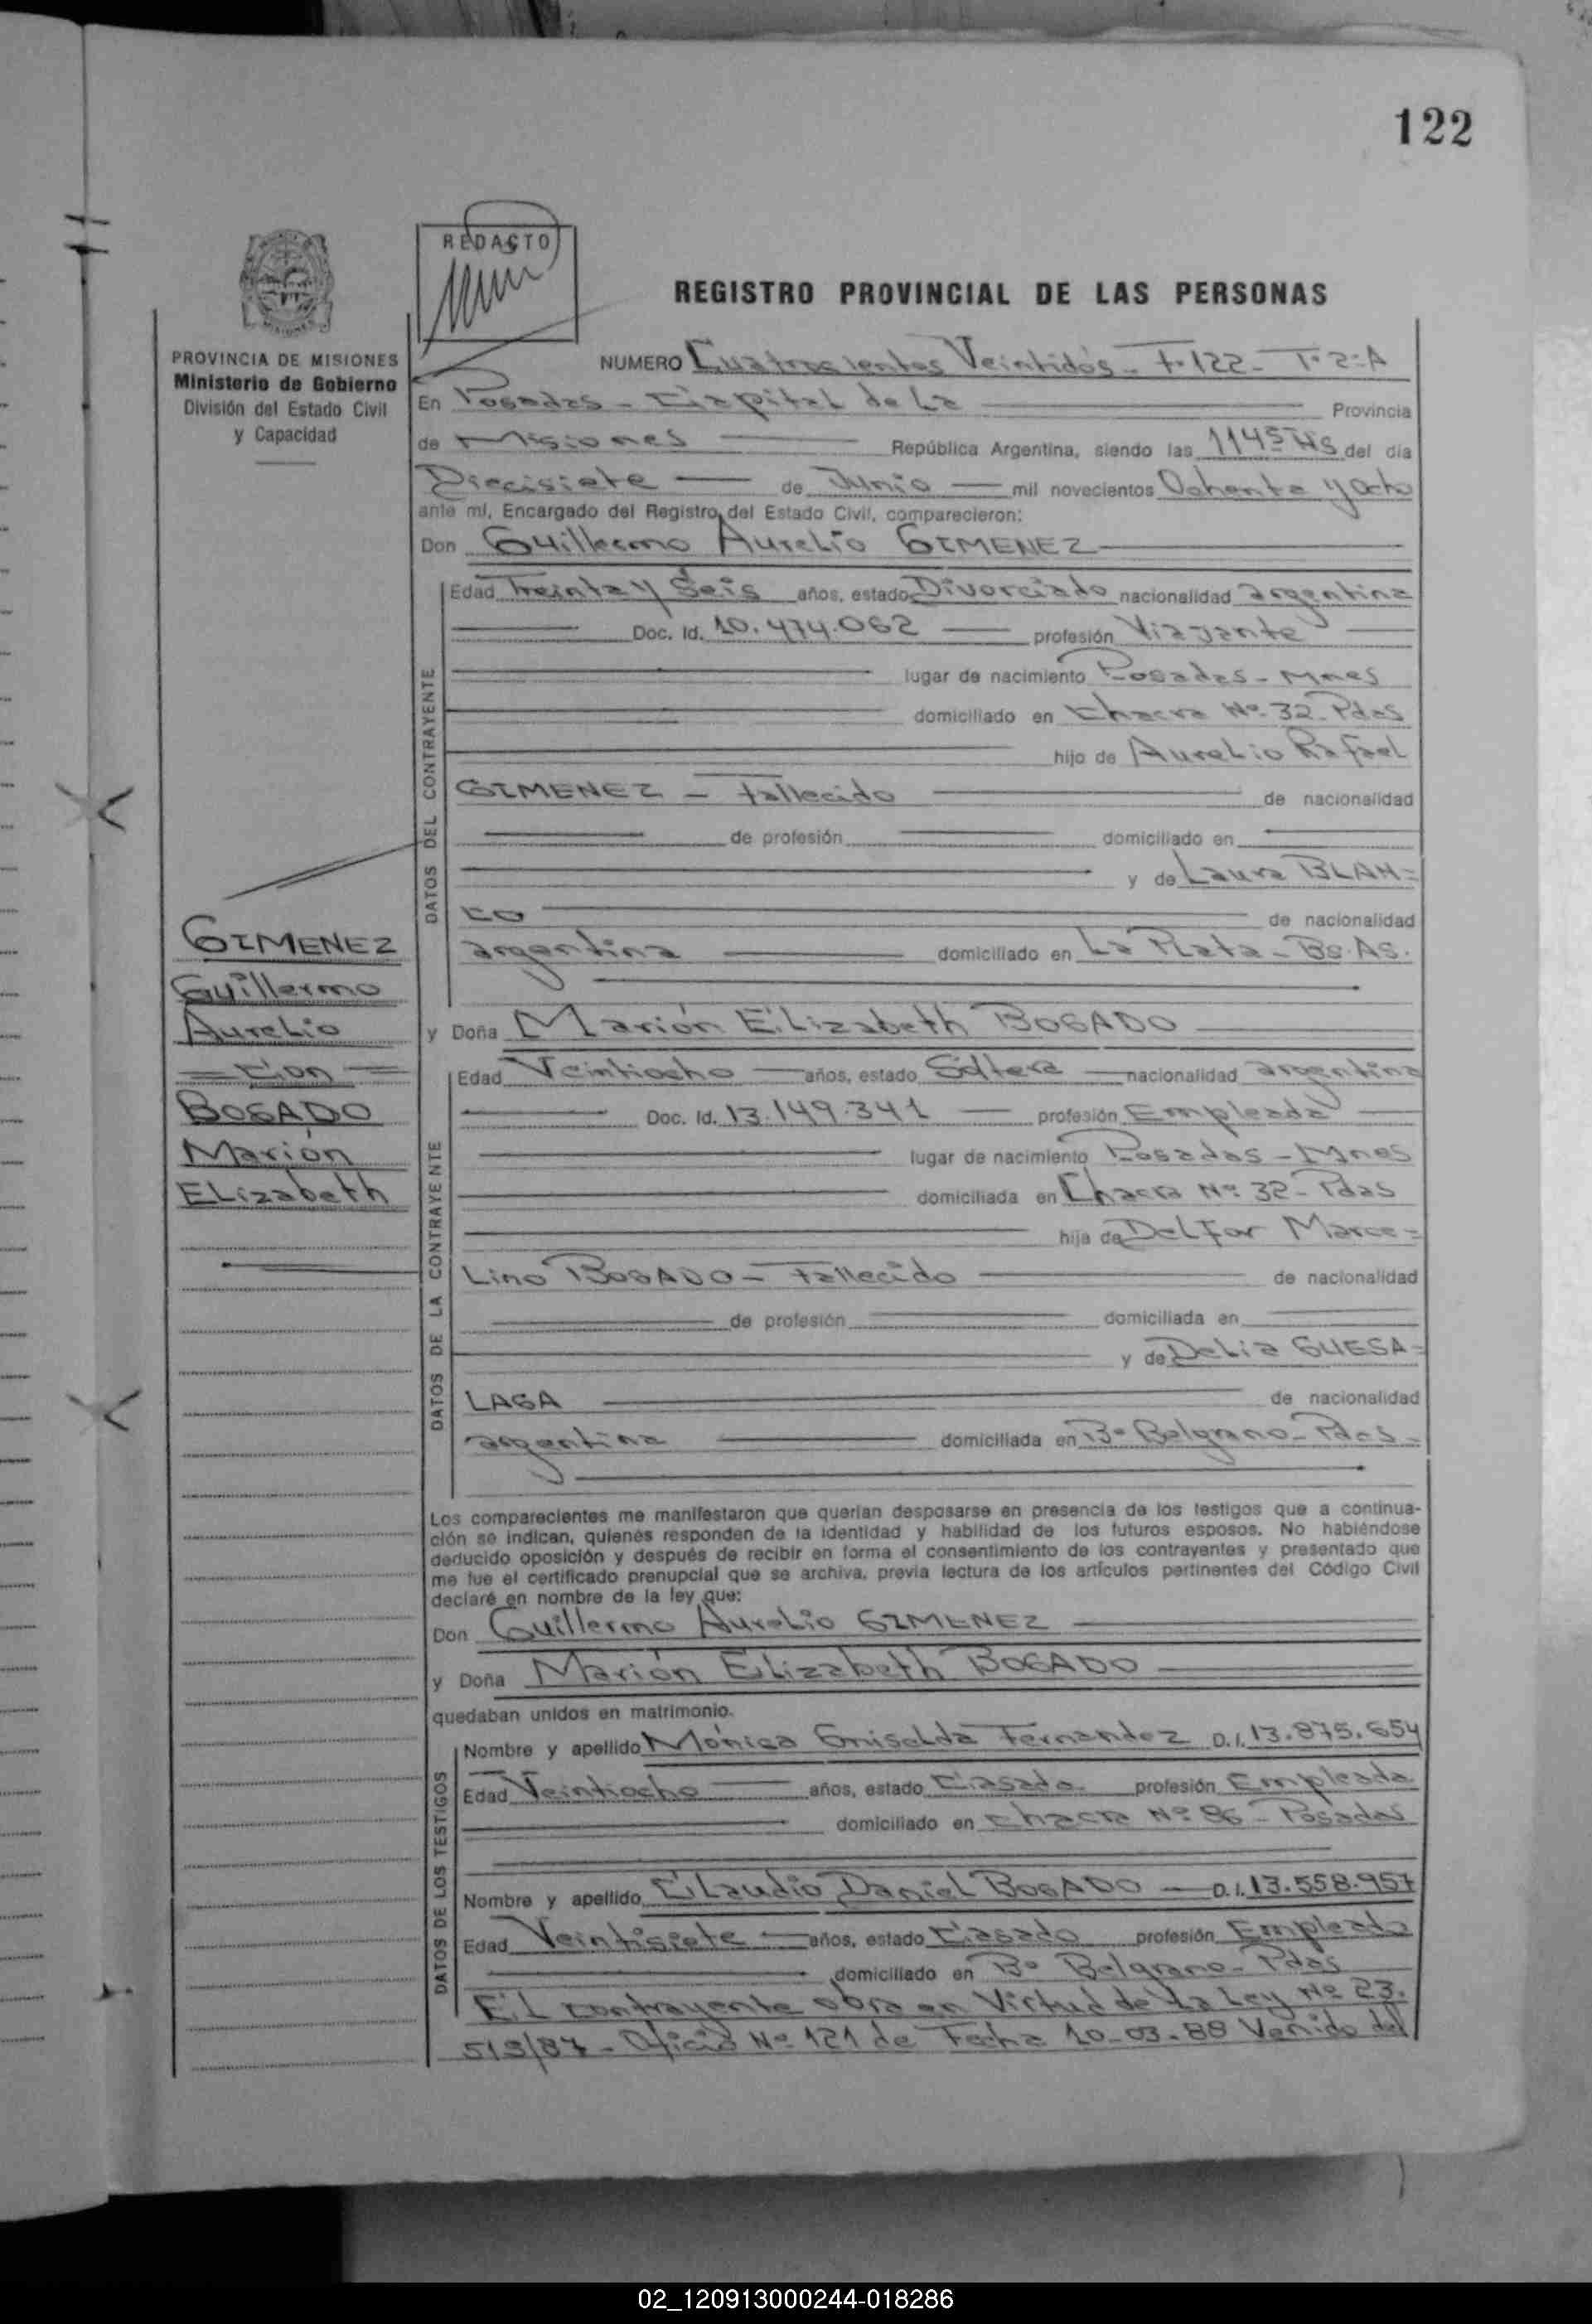 122
REDACTO
REGISTRO PROVINCIAL DE LAS PERSONAS
PROVINCIA DE MISIONES
Ministerio de Gobierno
División del Estado Civil
y Capacidad
NUMERO Cuatrocientos Veintidós - F-122 - T-2-A
En Posadas - Capital de La Provincia
de Misiones República Argentina, siendo las 1145 HS del día
Diecisiete de Junio mil novecientos Ochenta y Ocho
ante mí, Encargado del Registro del Estado Civil, comparecieron:
Don Guillermo Aurelio GIMENEZ
DATOS DEL CONTRAYENTE
Edad Treinta y Seis años, estado Divorciado nacionalidad argentina
Doc. Id. 10.474.062 profesión Viajante
lugar de nacimiento Posadas - Mnes
domiciliado en Chacra Nº 32 - Pdas
hijo de Aurelio Rafael
GIMENEZ - Fallecido de nacionalidad
de profesión domiciliado en
y de Laura BLAN=
CO de nacionalidad
argentina domiciliado en La Plata - Bs. As.
GIMENEZ
Guillermo
Aurelio
= Con =
BOGADO
Marión
Elizabeth
y Doña Marión Elizabeth BOGADO
DATOS DE LA CONTRAYENTE
Edad Veintiocho años, estado Soltera nacionalidad argentina
Doc. Id. 13.149.341 profesión Empleada
lugar de nacimiento Posadas - Mnes
domiciliada en Chacra Nº 32 - Pdas
hija de Delfor Marce=
Lino BOGADO - Fallecido de nacionalidad
de profesión domiciliada en
y de Delia GUESA=
LAGA de nacionalidad
argentina domiciliada en Bº Belgrano - Pdas -
Los comparecientes me manifestaron que querían desposarse en presencia de los testigos que a continua-
ción se indican, quienes responden de la identidad y habilidad de los futuros esposos. No habiéndose
deducido oposición y después de recibir en forma el consentimiento de los contrayentes y presentado que
me fue el certificado prenupcial que se archiva, previa lectura de los artículos pertinentes del Código Civil
declaré en nombre de la ley que:
Don Guillermo Aurelio GIMENEZ
y Doña Marión Elizabeth BOGADO
quedaban unidos en matrimonio.
DATOS DE LOS TESTIGOS
Nombre y apellido Mónica Griselda Fernandez D.I. 13.875.654
Edad Veintiocho años, estado Casada profesión Empleada
domiciliado en Chacra Nº 86 - Posadas
Nombre y apellido Claudio Daniel BOGADO - D.I. 13.558.957
Edad Veintisiete años, estado Casado profesión Empleado
domiciliado en Bº Belgrano - Pdas
El contrayente obra en Virtud de La Ley Nº 23.
515/87 - Oficio Nº 121 de Fecha 10-03-88 Venido del
02_120913000244-018286